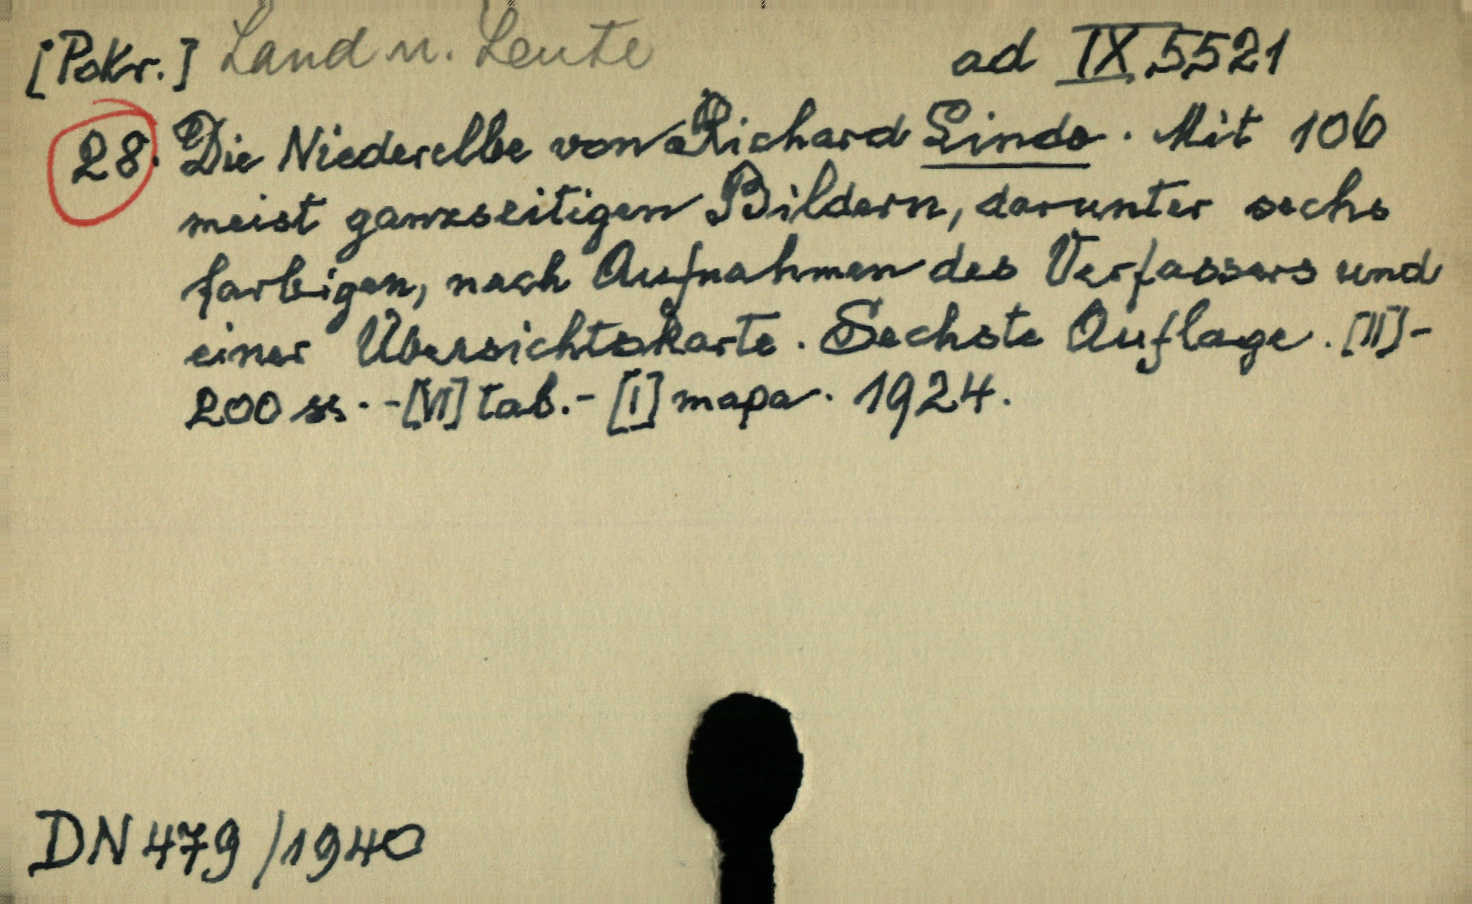 [Pokr.] Land u. Leute ad IX 5521
28. Die Niederelbe von Richard Linde. Mit 106
meist ganzseitigen Bildern, darunter sechs
farbigen, nach Aufnahmen des Verfassers und
einer Übersichtskarte. Sechste Auflage. [II]-
200 ss. -[VI] tab.- [I] mapa. 1924.
DN 479/1940